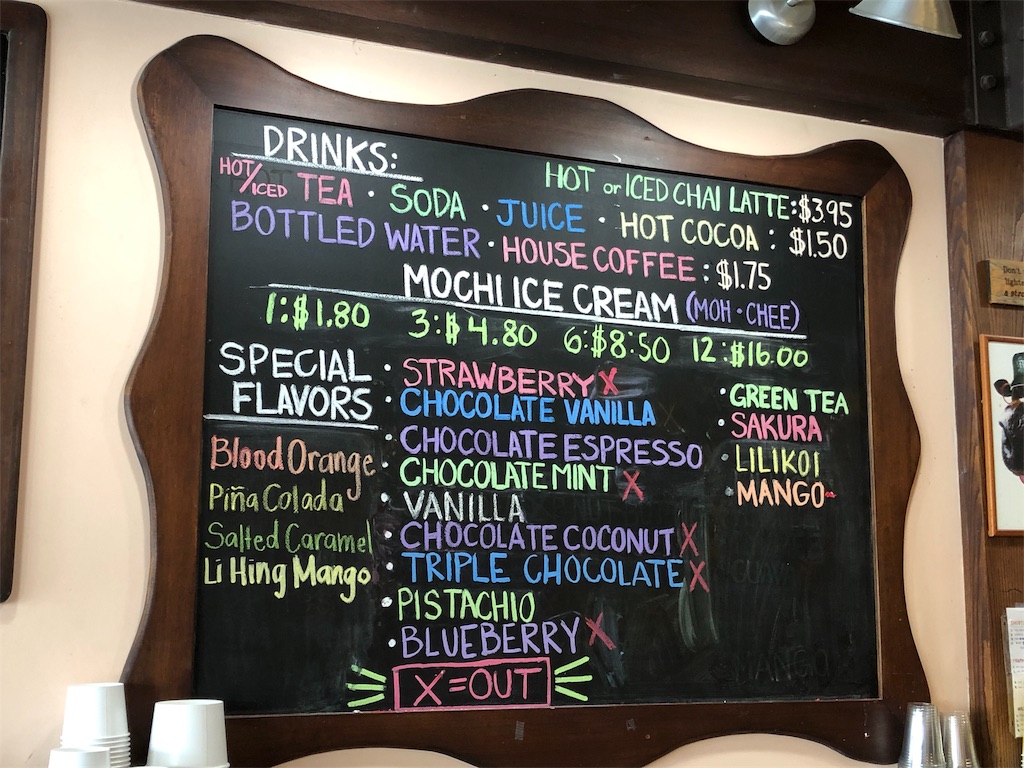 DRINKS:
HOT/ICED TEA · SODA · JUICE · HOT COCOA : $1.50
HOT or ICED CHAI LATTE: $3.95
BOTTLED WATER · HOUSE COFFEE : $1.75
MOCHI ICE CREAM (MOH · CHEE)
1: $1.80 3: $4.80 6: $8.50 12: $16.00
SPECIAL FLAVORS
Blood Orange
Piña Colada
Salted Caramel
Li Hing Mango
· STRAWBERRY X
· CHOCOLATE VANILLA
· CHOCOLATE ESPRESSO
· CHOCOLATE MINT X
· VANILLA
· CHOCOLATE COCONUT X
· TRIPLE CHOCOLATE X
· PISTACHIO
· BLUEBERRY X
· GREEN TEA
· SAKURA
· LILIKOI
· MANGO
X = OUT
MANGO
Don't